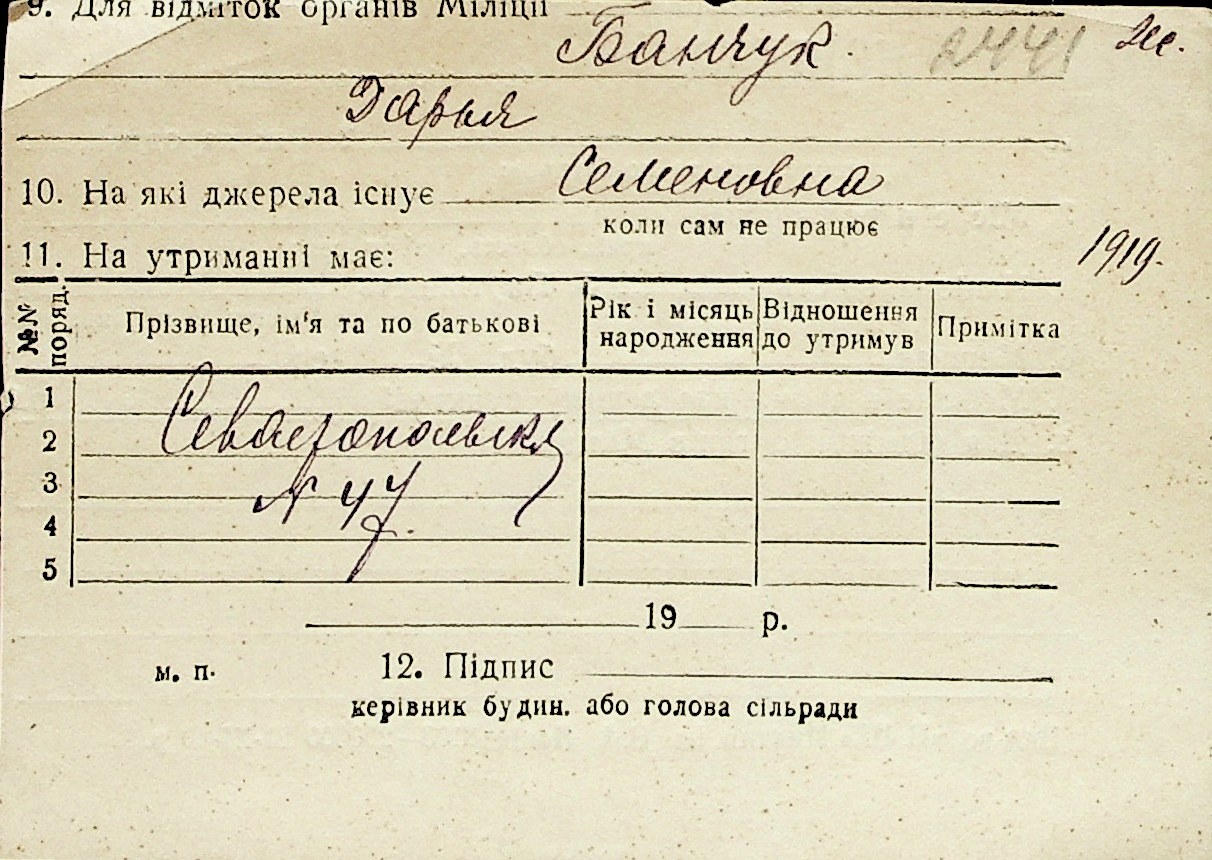 9. Для відміток органів Міліції
Банчук. 2441
Дарья
10. На які джерела існує Семеновна
коли сам не працює
1919.
11. На утриманні має:
№№ поряд. Прізвище, ім'я та по батькові Рік і місяць народження Відношення до утримув Примітка
1
2 Севастопольская
3 N 47.
4
5
19 р.
м. п. 12. Підпис
керівник будин. або голова сільради